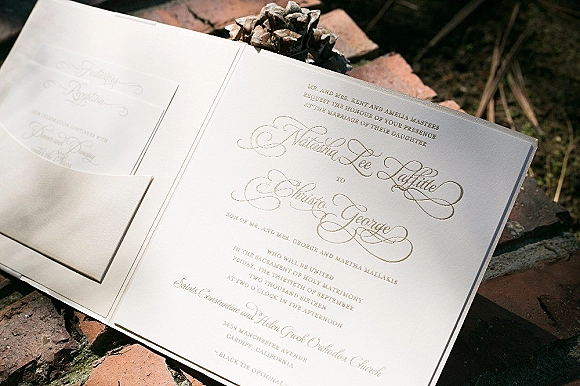 Festivities
Reception
MR. AND MRS. KENT AND AMELIA MASTERS
REQUEST THE HONOUR OF YOUR PRESENCE
AT THE MARRIAGE OF THEIR DAUGHTER
Natasha Lee Laffitte
TO
Christo George
SON OF MR. AND MRS. GEORGE AND MARTHA MALLAKIS
WHO WILL BE UNITED
IN THE SACRAMENT OF HOLY MATRIMONY
FRIDAY, THE THIRTIETH OF SEPTEMBER
TWO THOUSAND SIXTEEN
AT TWO O'CLOCK IN THE AFTERNOON
Saints Constantine and Helen Greek Orthodox Church
3459 MANCHESTER AVENUE
CARDIFF, CALIFORNIA
- BLACK TIE OPTIONAL -